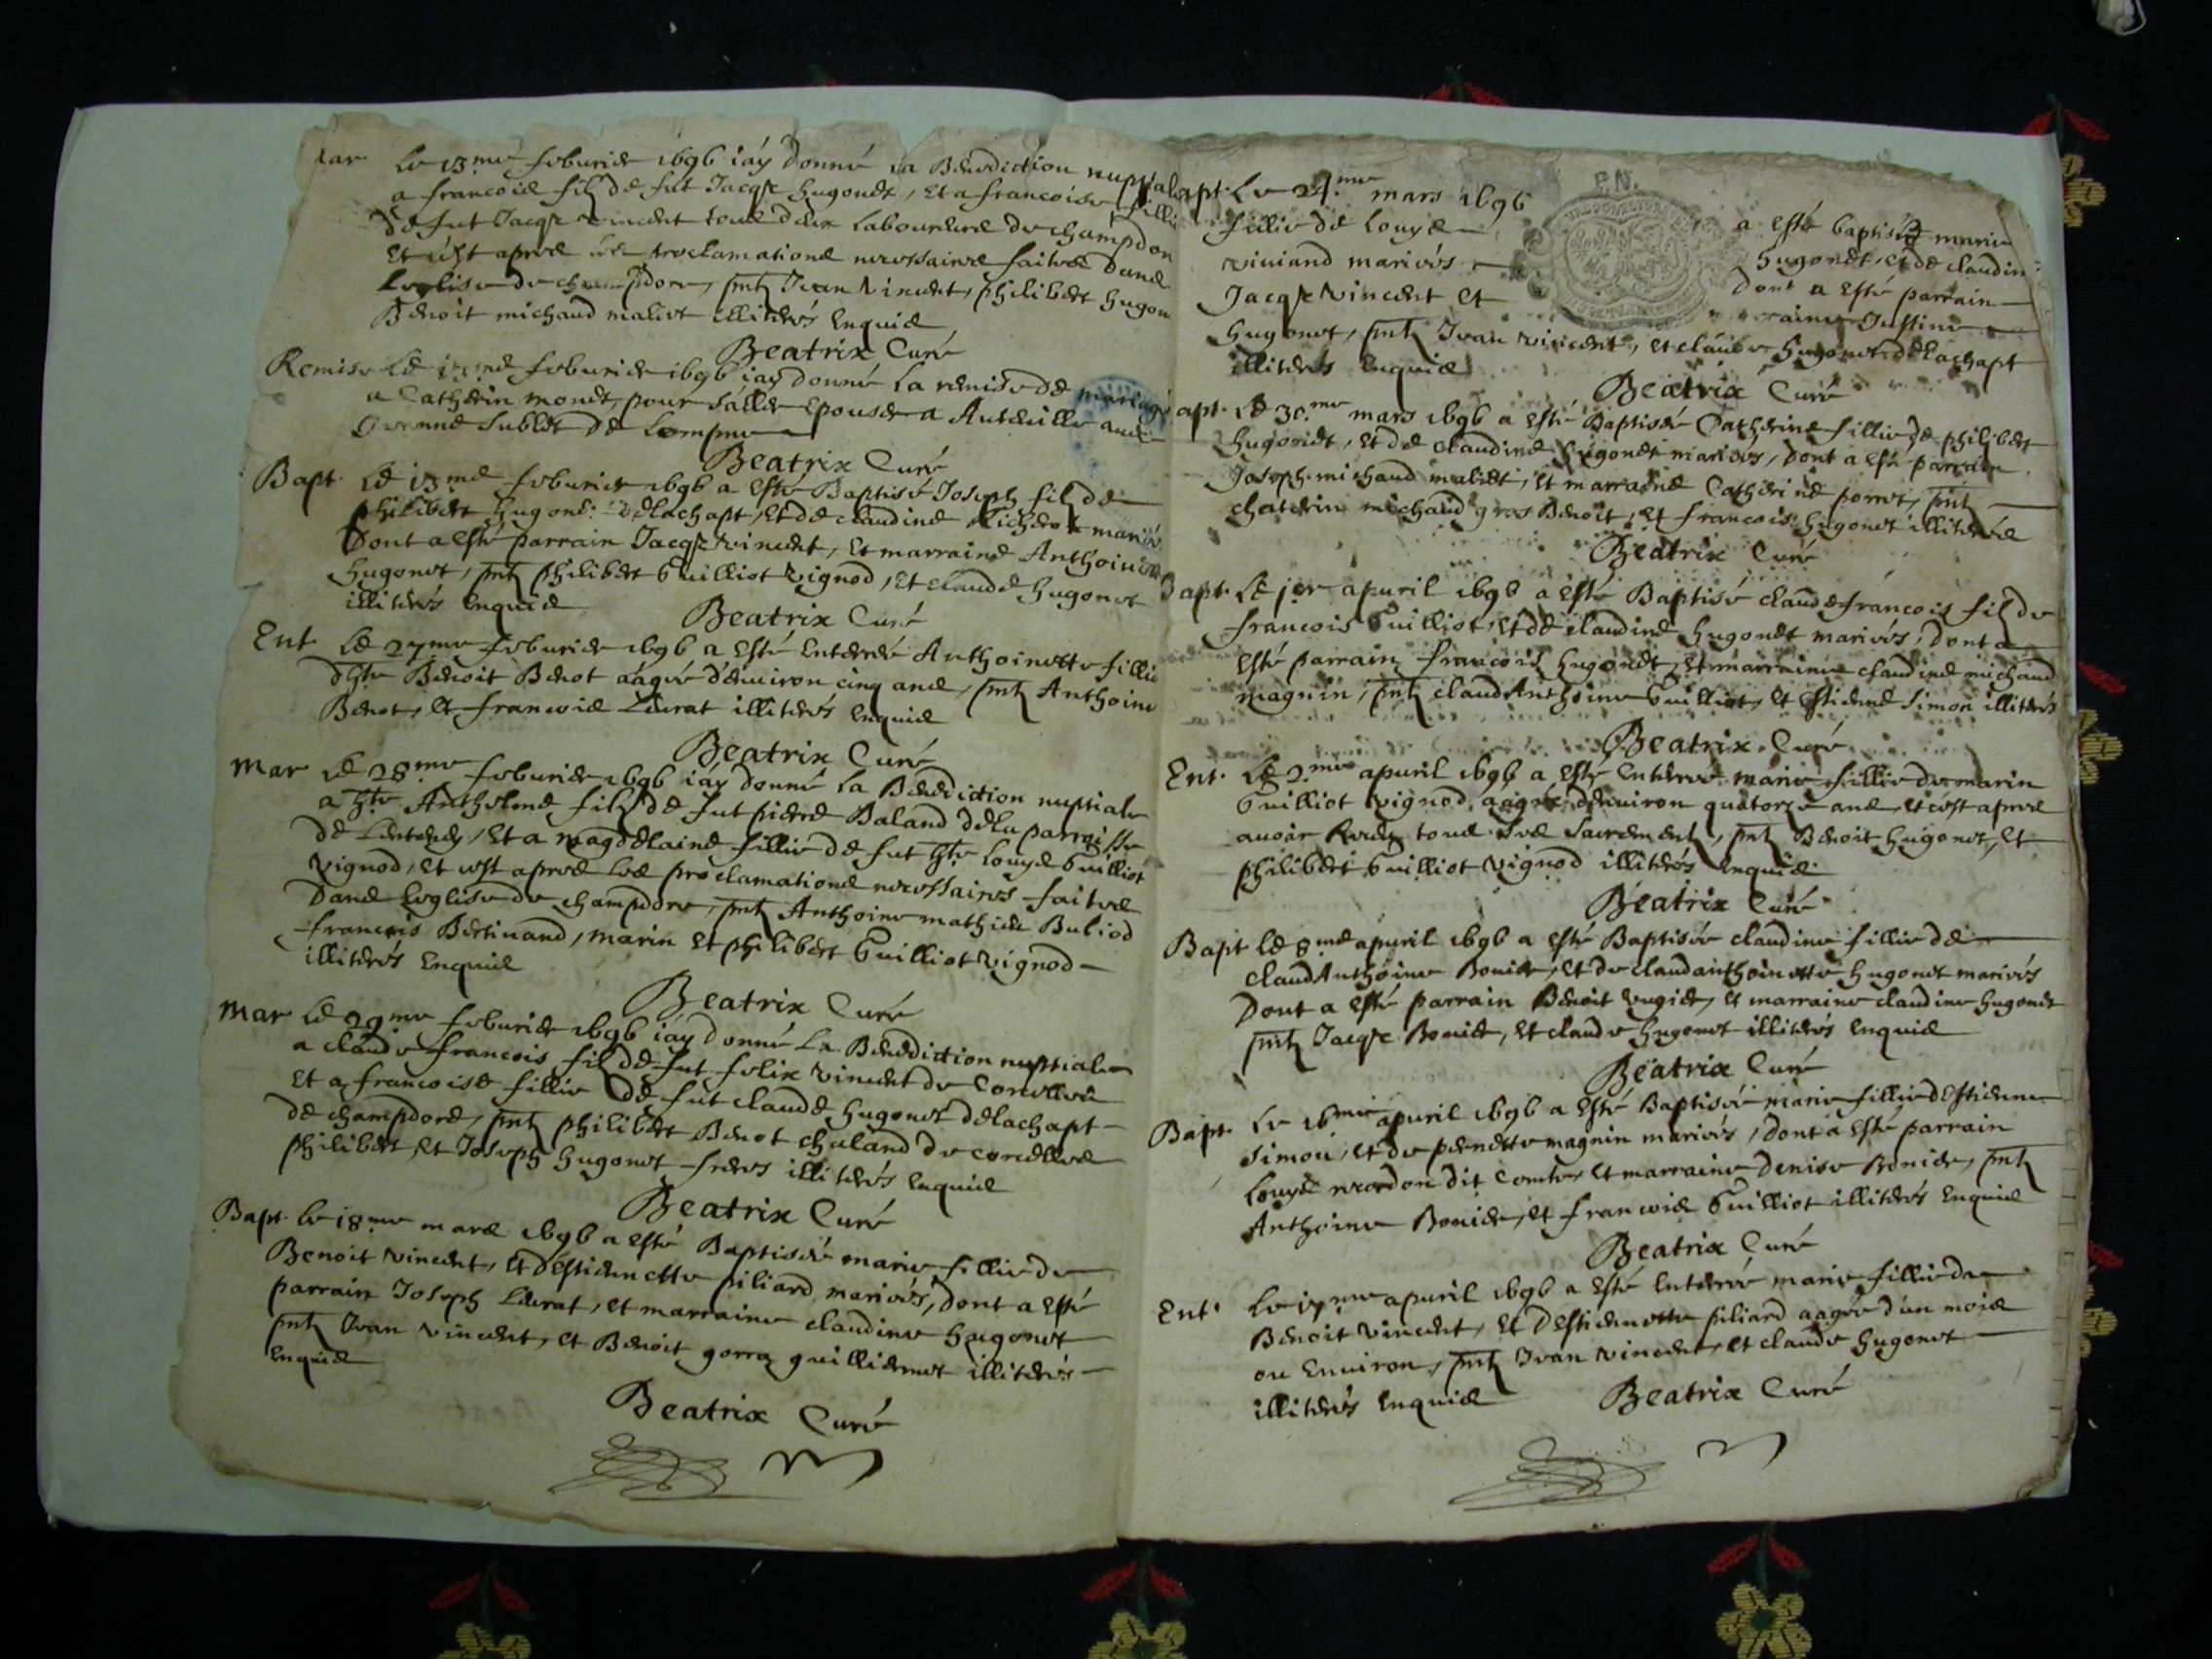 Mar Le 13.me feburier 1696 iay donné la Benediction nuptiale
a francois filz de fut Jacqs hugonet, et a francoise fillie
de fut Jacqs vincent tous deux laboureurs de champdor
Et c'est apres les proclamations necessaires faites dans
l'eglise de champdore, pntz Jvan Vincent, philibert hugon
Benoit michaud maliet illiterés Enquis
Beatrix Curé
Remise Le feburier 1696 iay donné la remise de mariage
a Catherin monet, pour s'aller epouser a Auteville auec
sublet de Lompne
Beatrix Curé
Bapt. Le 13.me feburier 1696 a esté Baptisé Joseph filz de
philibert hugonet delachapt, et de claudine mariés
Dont a esté parrain Jacqs vincent, et marraine Anthoinette
hugonet, pntz philibert Guilliot vignod, et claude hugonet
illiterés Enquis
Beatrix Curé
Ent. Le 27.me feburier 1696 a esté Enterrée Anthoinette fillie
d'hte Benoit Benot aagée d'enuiron cinq ans, pntz Anthoine
Benot, et francois Leurat illiterés Enquis
Beatrix Curé
Mar Le 28.me feburier 1696 iay donné la Benediction nuptiale
a hte Anthelme filz de fut pierre Baland dela parroisse
de, et a magdelaine fillie de fut hte Louys Guilliot
vignod, et c'est apres les proclamations necessaires faites
Dans l'eglise de champdore, pntz Anthoine mathieu Buliod
francois Bertinand, marin et philibert Guilliot vignod
illiterés Enquis
Beatrix Curé
Mar Le 29.me feburier 1696 iay donné la Benediction nuptiale
a claude francois filz de fut felix vincent de Corcelles
Et a francoise fillie de fut claude hugonet delachapt
de champdore, pntz philibert Benot chaland de corcelles
philibert, et Joseph hugonet freres illiterés Enquis
Beatrix Curé
Bapt. Le 18.me mars 1696 a esté Baptisée marie fillie de
Benoit vincent, et d'estiennette piliard mariés, dont a esté
parrain Joseph Leurat, et marraine claudine hugonet
pntz Jvan vincent, et Benoit gorra guilliermet illiterés
Enquis
Beatrix Curé
Bapt. Le 24.me mars 1696 a esté baptisée marie
fillie de Louys hugonet, et de claudine
viuiand mariés dont a esté parrain
Jacqs vincent et marraine Justine
hugonet, pntz Jvan vincent, et claude hugonet delachapt
illiterés Enquis
Beatrix Curé
Bapt. Le 30.me mars 1696 a esté Baptisée Catherine fillie de philibert
hugonet, et de claudine hugonet mariés, dont a esté parrain
Joseph michaud maliet, et marraine Catherine porret, pntz
chaterin michaud gros Benoit, et francois hugonet illiterés
Beatrix Curé
Bapt. Le jer apuril 1696 a esté Baptisé claude francois filz de
francois Guilliot, et de claudine hugonet mariés, dont a
esté parrain francois hugonet, et marraine claudine michaud
magnin, pntz claud Anthoine Guilliot, et Estienne Simon illiterés
Beatrix Curé
Ent. Le 2.me apuril 1696 a esté enterree marie fillie de marin
Guilliot vignod, aagée d'enuiron quatorze ans, et c'est apres
auoir Receu tous ses Sacrements, pntz Benoit hugonet, et
philibert Guilliot vignod illiterés Enquis
Beatrix Curé
Bapt Le 8.me apuril 1696 a esté Baptisée claudine fillie de
claud Anthoine Bouier, et de claudanthoinette hugonet mariés
Dont a esté parrain Benoit vugier, et marraine claudine hugonet
pntz Jacqs Bouier, et claude hugonet illiterés Enquis
Beatrix Curé
Bapt. Le 16.me apuril 1696 a esté Baptisée marie fillie d'Estienne
Simon, et de pernette magnin mariés, dont a esté parrain
Louys dit Comte, et marraine Denise Bouier, pntz
Anthoine Bouier, et francois Guilliot illiterés Enquis
Beatrix Curé
Ent. Le 17.me apuril 1696 a esté Enterrée marie fillie de
Benoit vincent, et D'estiennette piliard aagée d'un mois
ou Enuiron, pntz Jvan vincent, et claude hugonet
illiterés Enquis
Beatrix Curé